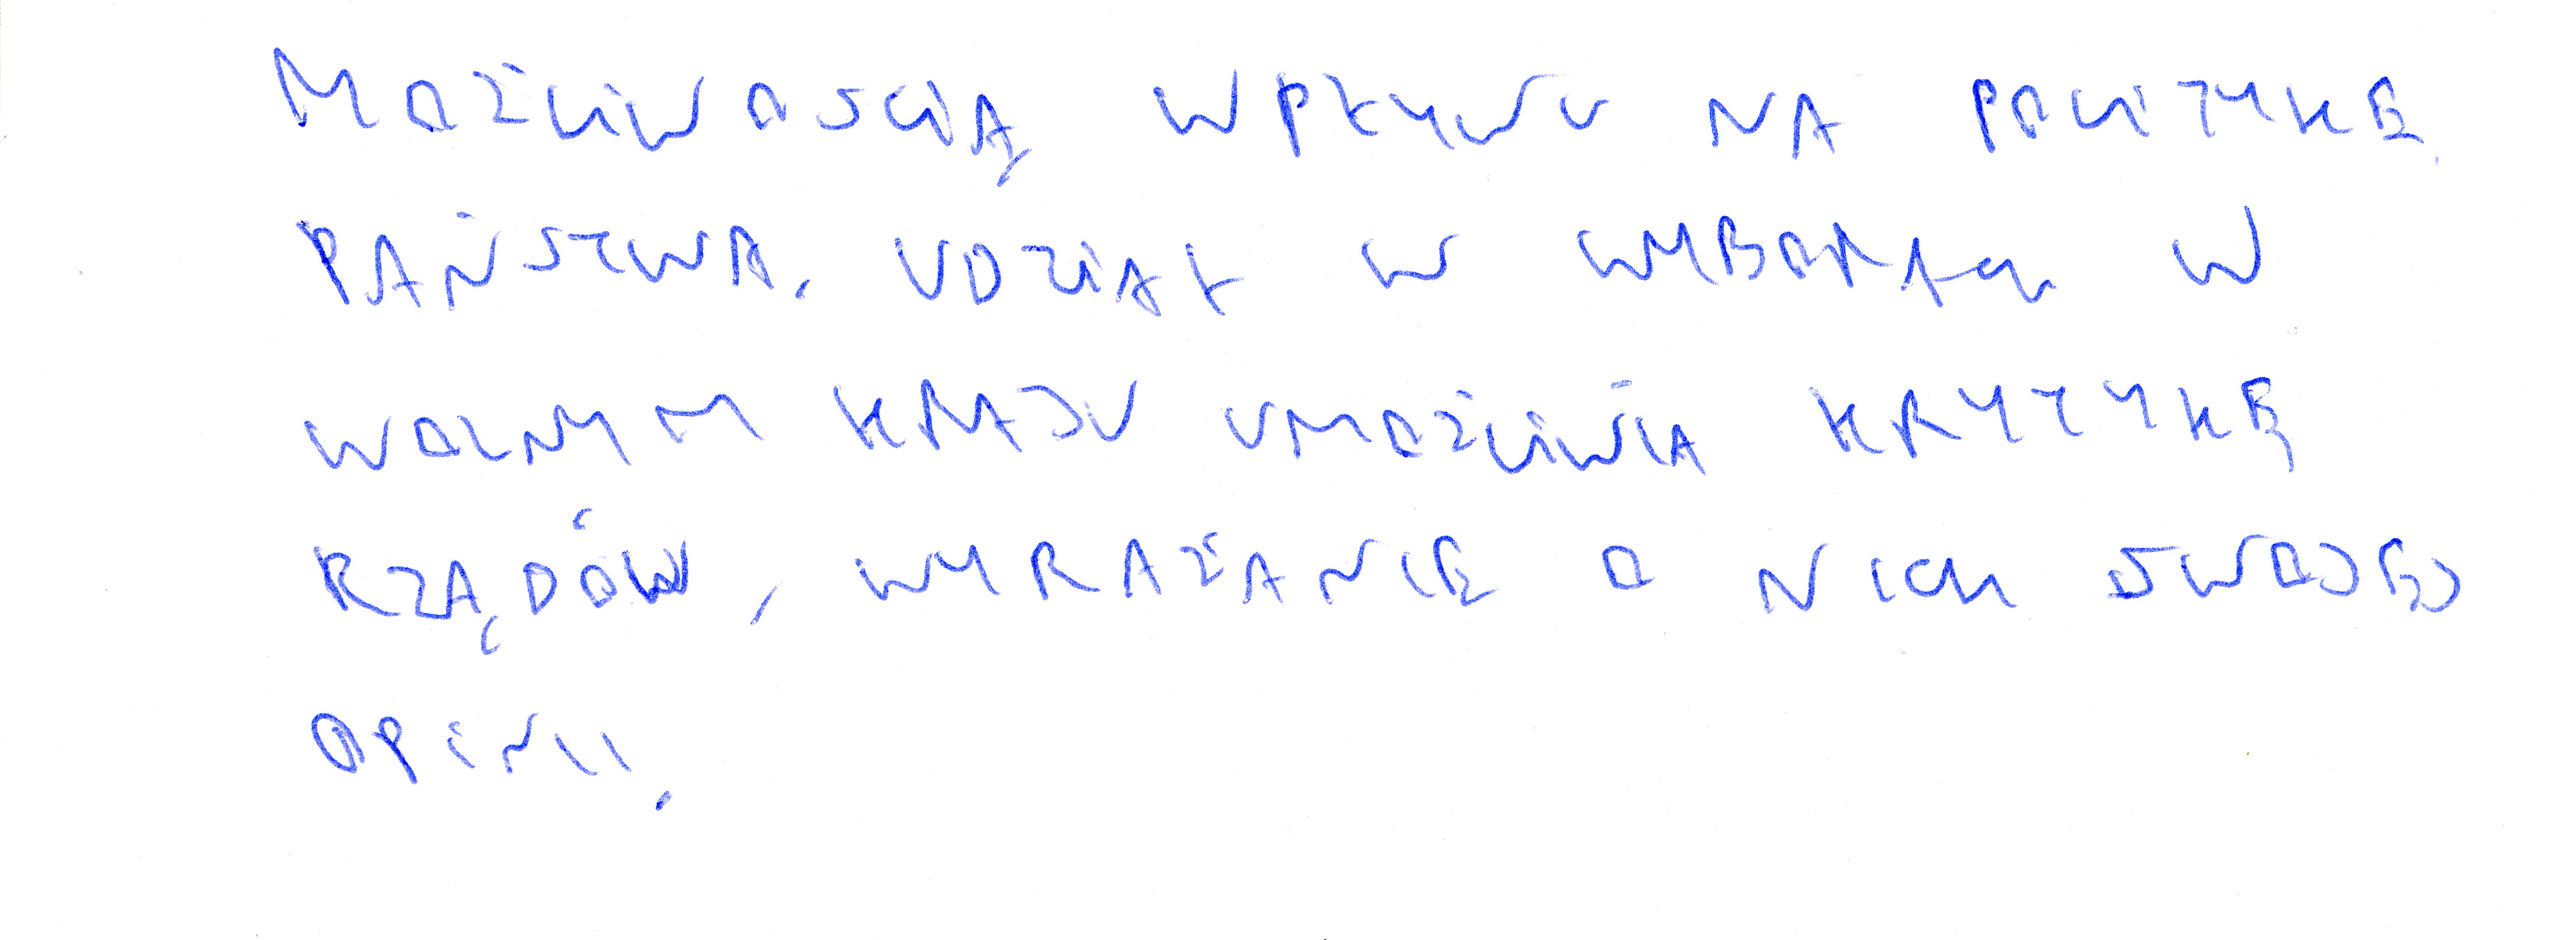 MOŻLIWOSCIĄ WPŁYWU NA POLITYKĘ
PAŃSTWA. UDZIAŁ W WYBORACH W
WOLNYM KRAJU UMOŻLIWIA KRYTYKĘ
RZĄDÓW, WYRAŻANIE O NICH SWOJEJ
OPINII.